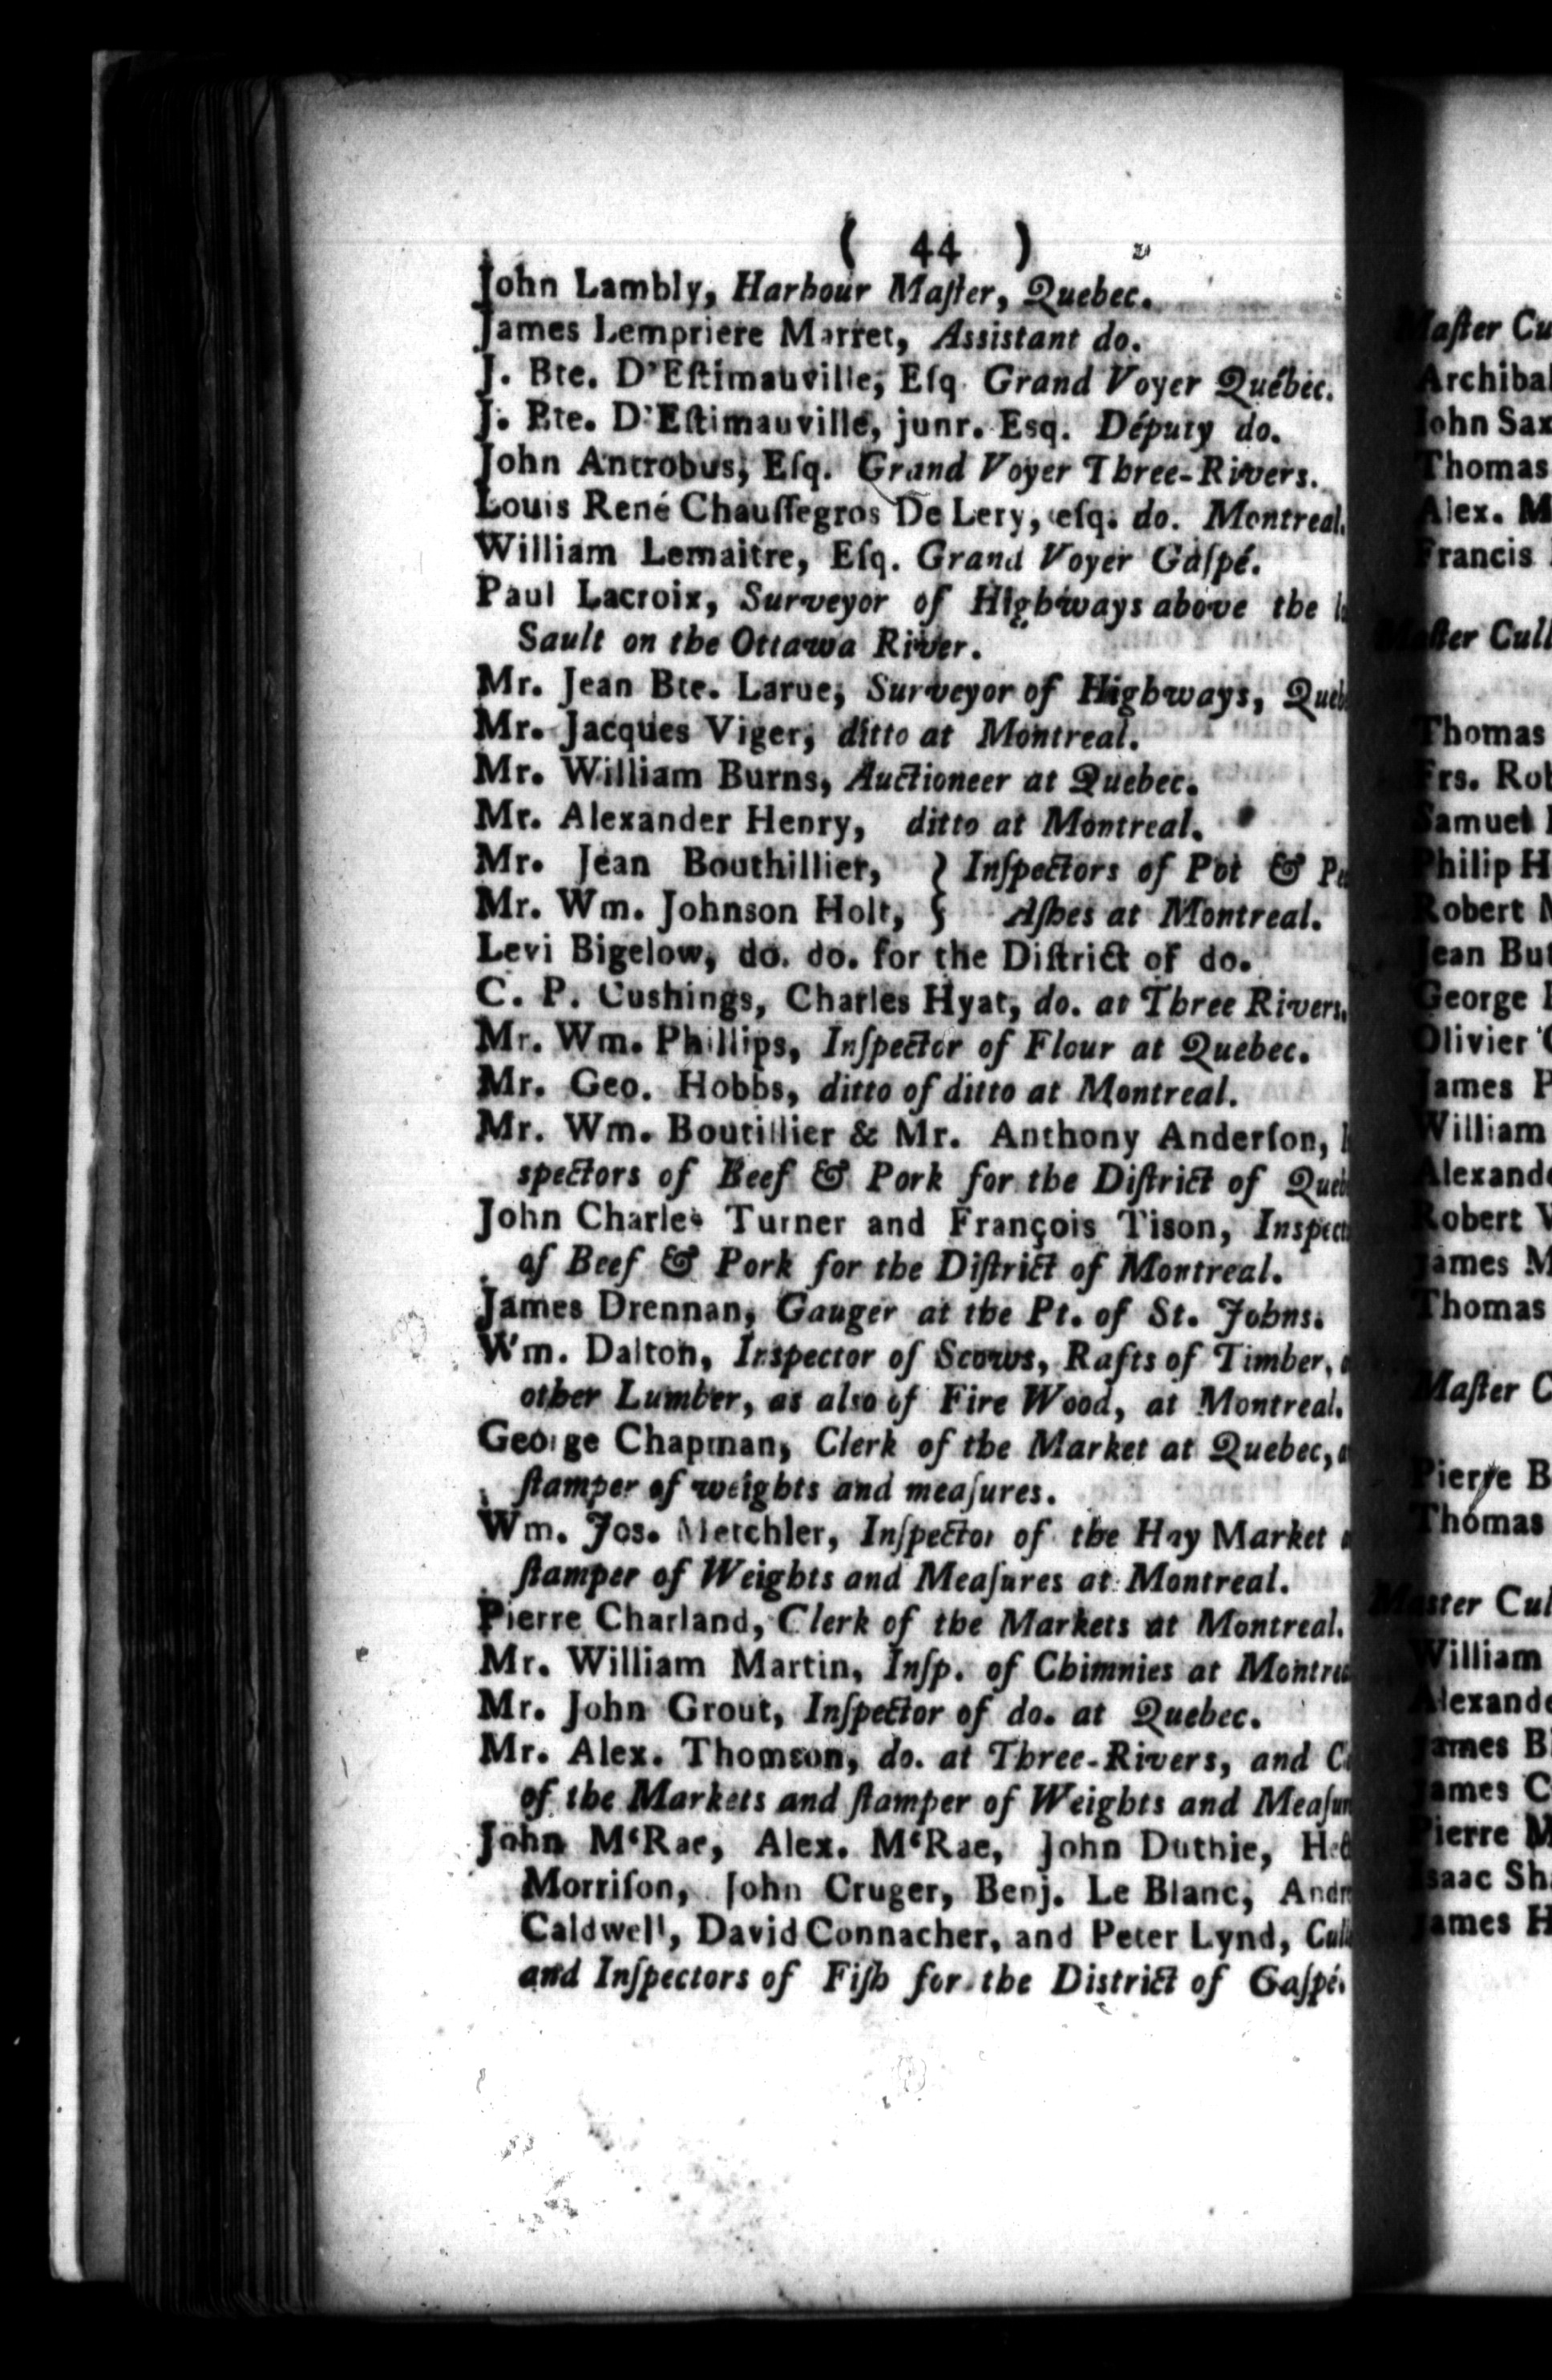 ( 44 )
John Lambly, Harbour Maſter, Quebec.
James Lempriere Marret, Assistant do.
J. Bte. D'Eſtimauville, Eſq. Grand Voyer Québec.
J. Bte. D'Eſtimauville, junr. Esq. Députy do.
John Antrobus, Eſq. Grand Voyer Three-Rivers.
Louis René Chauſſegros De Lery, eſq. do. Montreal.
William Lemaitre, Eſq. Grand Voyer Gaſpé.
Paul Lacroix, Surveyor of Highways above the
Sault on the Ottawa River.
Mr. Jean Bte. Larue, Surveyor of Highways, Queb
Mr. Jacques Viger, ditto at Montreal.
Mr. William Burns, Auctioneer at Quebec.
Mr. Alexander Henry, ditto at Montreal.
Mr. Jean Bouthillier, } Inſpectors of Pot & Pe
Mr. Wm. Johnson Holt, } Aſhes at Montreal.
Levi Bigelow, do. do. for the Diſtrict of do.
C. P. Cushings, Charles Hyat, do. at Three Rivers.
Mr. Wm. Phillips, Inſpector of Flour at Quebec.
Mr. Geo. Hobbs, ditto of ditto at Montreal.
Mr. Wm. Boutillier & Mr. Anthony Anderſon,
spectors of Beef & Pork for the Diſtrict of Queb
John Charles Turner and François Tison, Inspect
of Beef & Pork for the Diſtrict of Montreal.
James Drennan, Gauger at the Pt. of St. Johns.
Wm. Dalton, Inspector of Scows, Rafts of Timber,
other Lumber, as also of Fire Wood, at Montreal.
George Chapman, Clerk of the Market at Quebec,
ſtamper of weights and meaſures.
Wm. Jos. Metchler, Inſpector of the Hay Market
ſtamper of Weights and Meaſures at Montreal.
Pierre Charland, Clerk of the Markets at Montreal.
Mr. William Martin, Inſp. of Chimnies at Montrea
Mr. John Grout, Inſpector of do. at Quebec.
Mr. Alex. Thomson, do. at Three-Rivers, and C
of the Markets and ſtamper of Weights and Meaſur
John M‘Rae, Alex. M‘Rae, John Duthie, Hec
Morriſon, John Cruger, Benj. Le Blanc, Andr
Caldwell, David Connacher, and Peter Lynd, Cull
and Inſpectors of Fiſh for the District of Gaſpé.
Maſter Cu
Archibal
John Sax
Thomas
Alex. M
Francis
Maſter Cull
Thomas
Frs. Rob
Samuel
Philip H
Robert M
Jean But
George
Olivier
James P
William
Alexande
Robert
James M
Thomas
Maſter C
Pierre B
Thomas
Master Cul
William
Alexande
James B
James C
Pierre M
Isaac Sh
James H